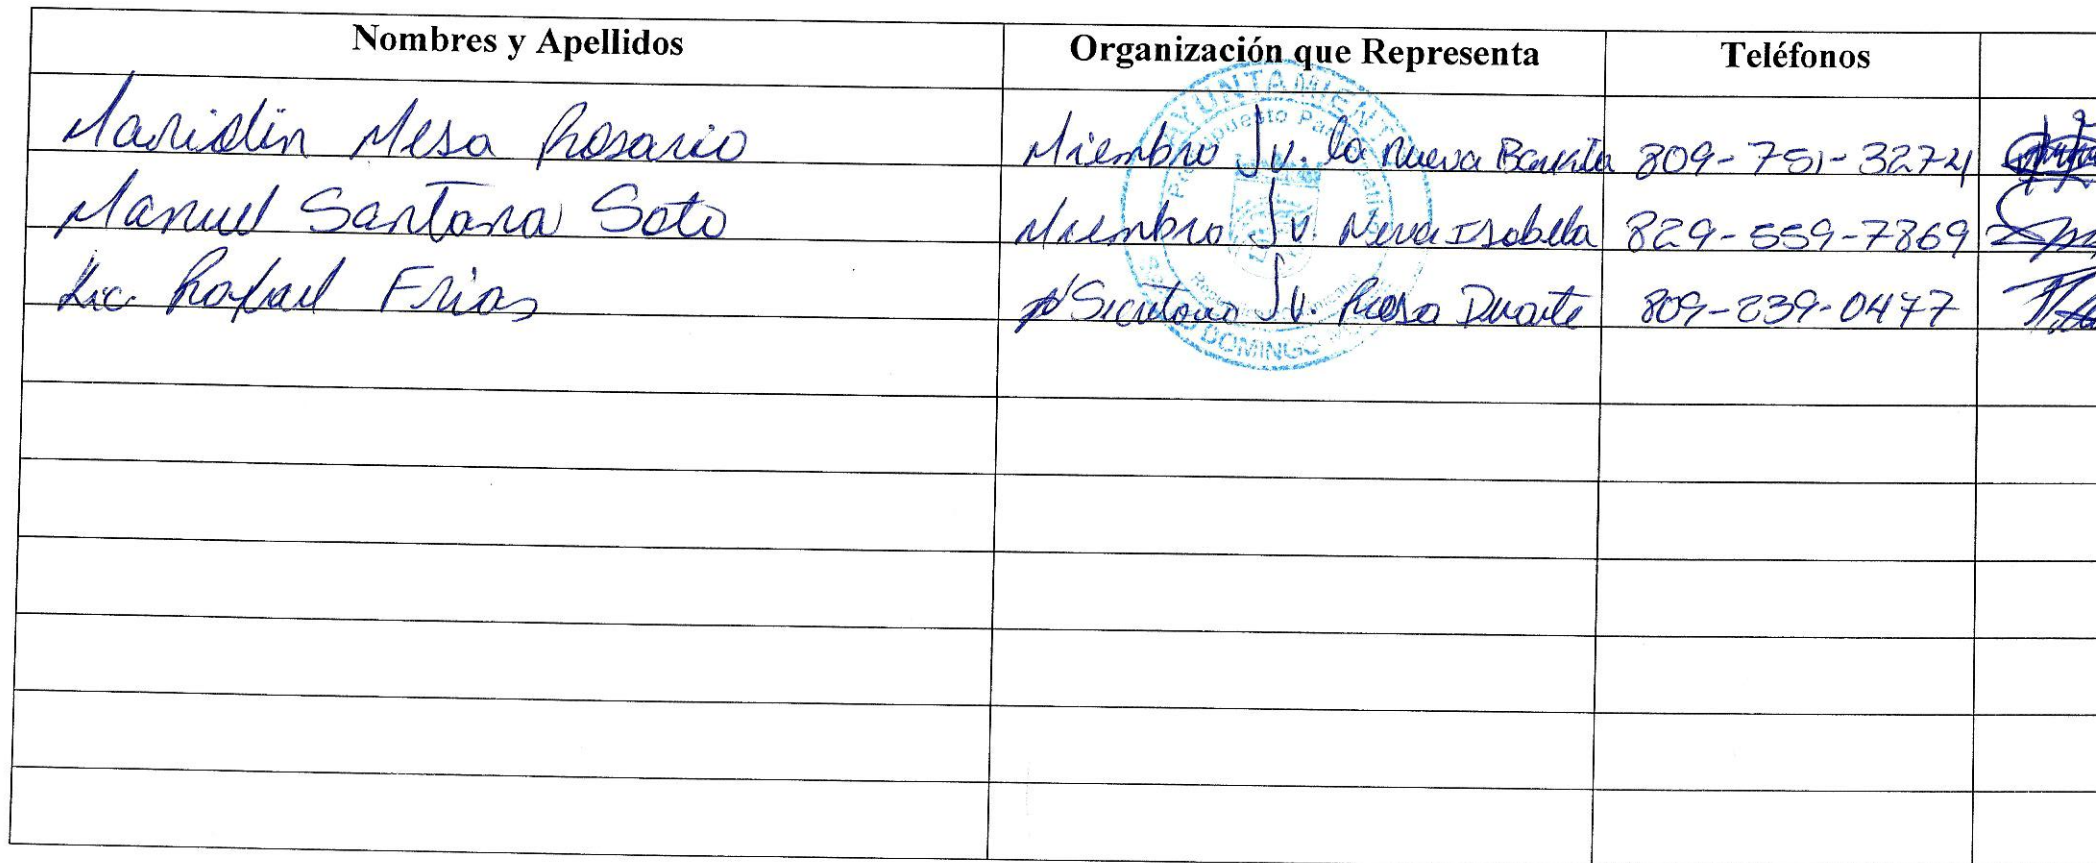 Nombres y Apellidos Organización que Representa Teléfonos
Mesa Rosario Miembro Jv. la Nueva 809-751-3274
Manuel Santana Soto Miembro Jv. Nueva Isabela 829-559-7869
Lic. Rafael Frias Jv. Rosa Duarte 809-239-0477
AYUNTAMIENTO
Presupuesto
DOMINGO